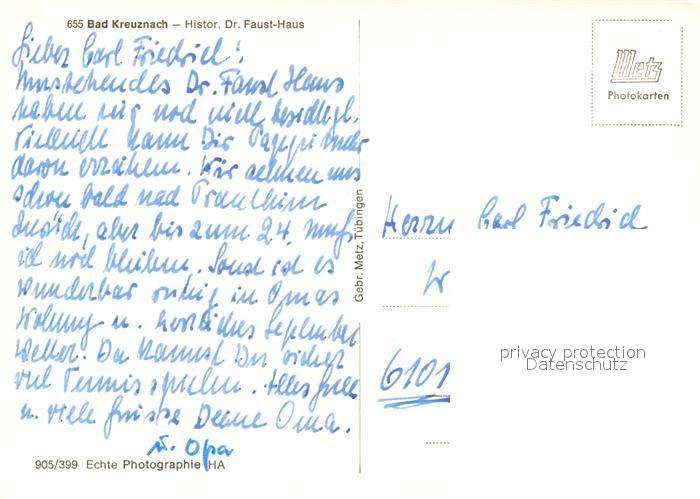 655 Bad Kreuznach – Histor. Dr. Faust-Haus
Lieber Carl Friedrich!
Umstehendes Dr. Faust Haus
haben wir noch nicht besichtigt.
Vielleicht kann Dir Pappi mehr
davon erzählen. Wir sehnen uns
schon bald nach Trautheim
zurück, aber bis zum 24. muß
ich noch bleiben. Sonst ist es
wunderbar ruhig in Omas
Wohnung u. herrliches September
Wetter. Da kannst Du sicher
viel Tennis spielen. Alles Gute
u. viele Grüsse Deine Oma.
u. Opa
905/399 Echte Photographie HA
Gebr. Metz, Tübingen
Metz
Photokarten
Herrn Carl Friedrich
W
6101
privacy protection
Datenschutz